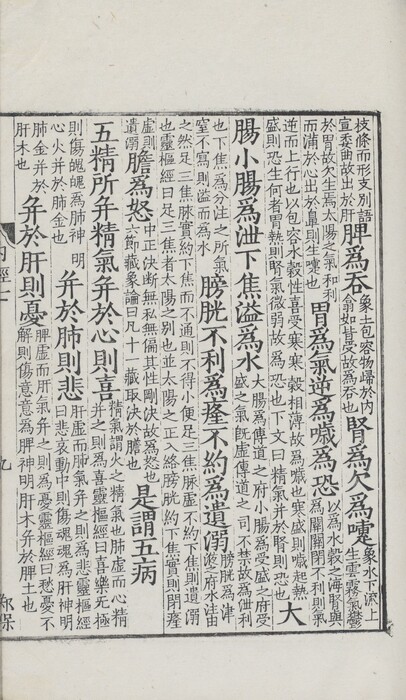 枝條而形支別語
宣委曲故出於肝
脾為吞
象土包容物歸於内
翕如皆受故為吞也
腎為欠為嚏
象水下流上
生雲霧氣鬱
於胃故欠生焉太陽之氣和利
而滿於心出於鼻則生嚏也
胃為氣逆為噦為恐
以為水穀之海腎與
為關關閉不利則氣
逆而上行也以包容水穀性喜受寒寒穀相薄故為噦也寒盛則噦起熱
盛則恐生何者胃熱則腎氣微弱故為恐也下文曰精氣并於腎則恐也
大
腸小腸為泄下焦溢為水
大腸為傳道之府小腸為受盛之府受
盛之氣旣虚傳道之司不禁故為泄利
也下焦為分注之所氣
窒不寫則溢而為水
膀胱不利為癃不約為遺溺
膀胱為津
液之府水注由
之然足三焦脉實約下焦而不通則不得小便足三焦脉虚不約下焦則遺溺
也靈樞經曰足三焦者太陽之別也並太陽之正入絡膀胱約下焦實則閉癃
虚則
遺溺
膽為怒
中正決斷無私無偏其性剛決故為怒也
六節藏象論曰凡十一藏取決於膽也
是謂五病
五精所并精氣并於心則喜
精氣謂火之精氣也肺虚而心精
并之則為喜靈樞經曰喜樂無極
則傷魄魄為肺神明
心火并於肺金也
并於肺則悲
肝虚而肺氣并之則為悲靈樞經
曰悲哀動中則傷魂魂為肝神明
肺金并於
肝木也
并於肝則憂
脾虚而肝氣并之則為憂靈樞經曰愁憂不
解則傷意意為脾神明肝木并於脾土也
内經七
九